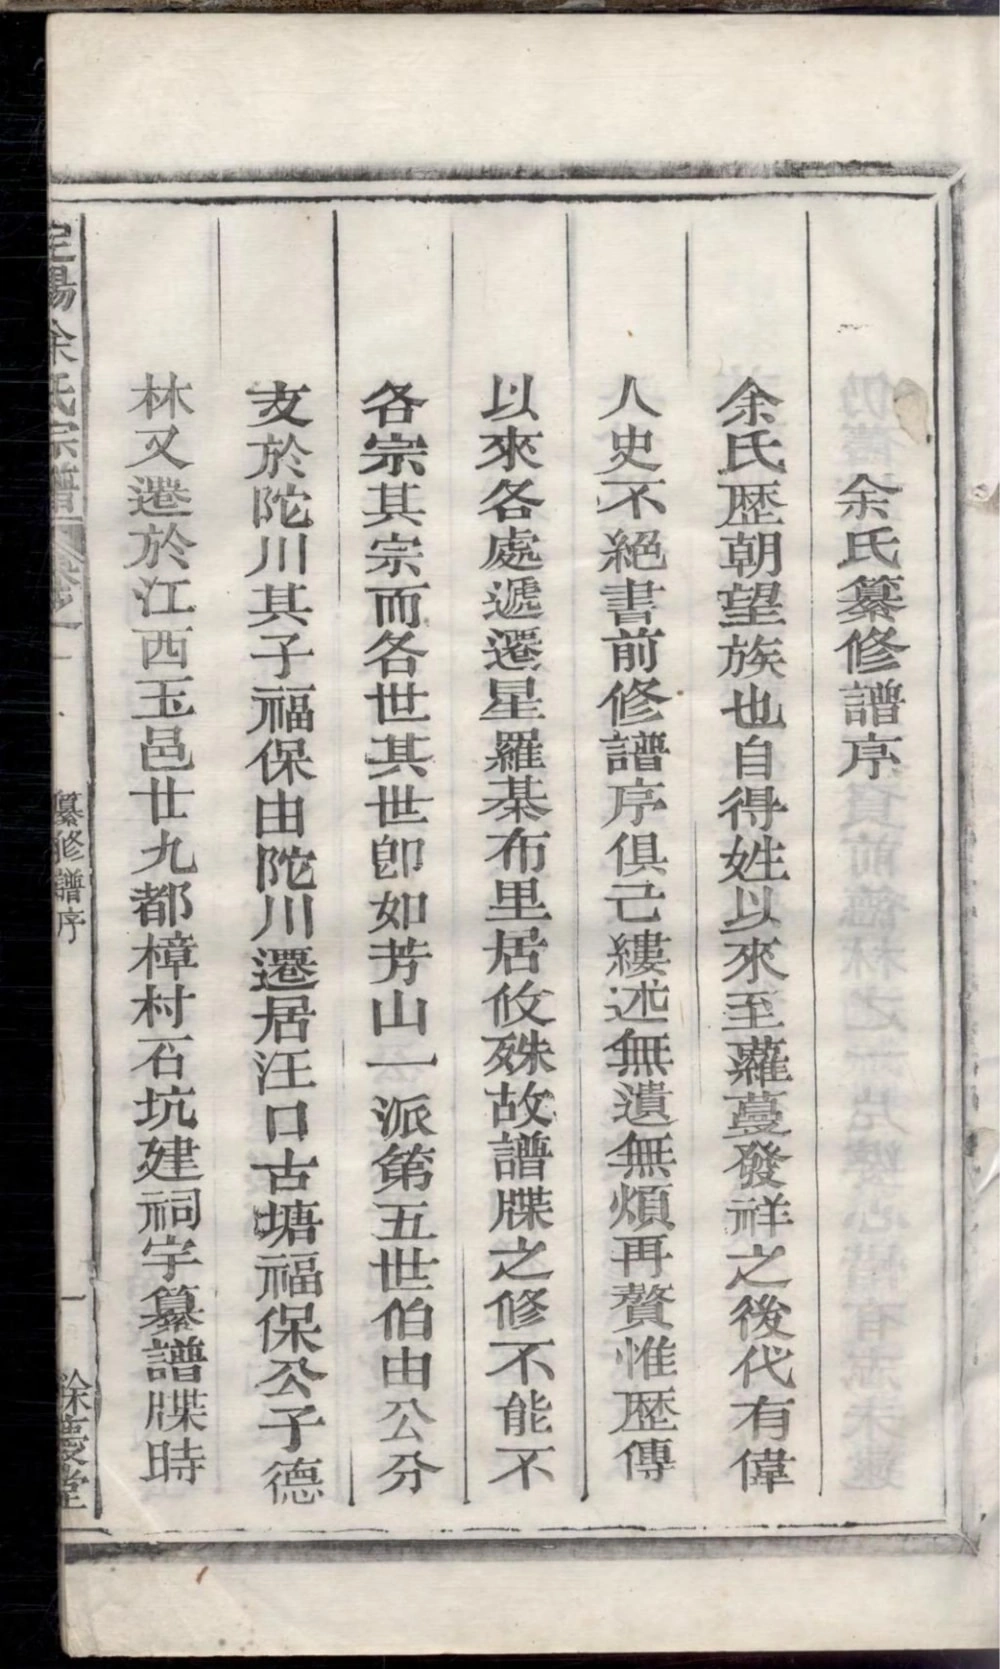 余氏纂修譜序
余氏歴朝望族也自得姓以來至蘿蔓發祥之後代有偉
人史不絕書前修譜序俱己縷述無遺無煩再贅惟歴傳
以來各處遞遷星羅棊布里居攸殊故譜牒之修不能不
各宗其宗而各世其世卽如芳山一派第五世伯由公分
支於陀川其子福保由陀川遷居汪口古塘福保公子德
林又遷於江西玉邑廿九都樟村石坑建祠宇纂譜牒時
定陽余氏宗譜 卷之一
纂修譜序
一
餘慶堂